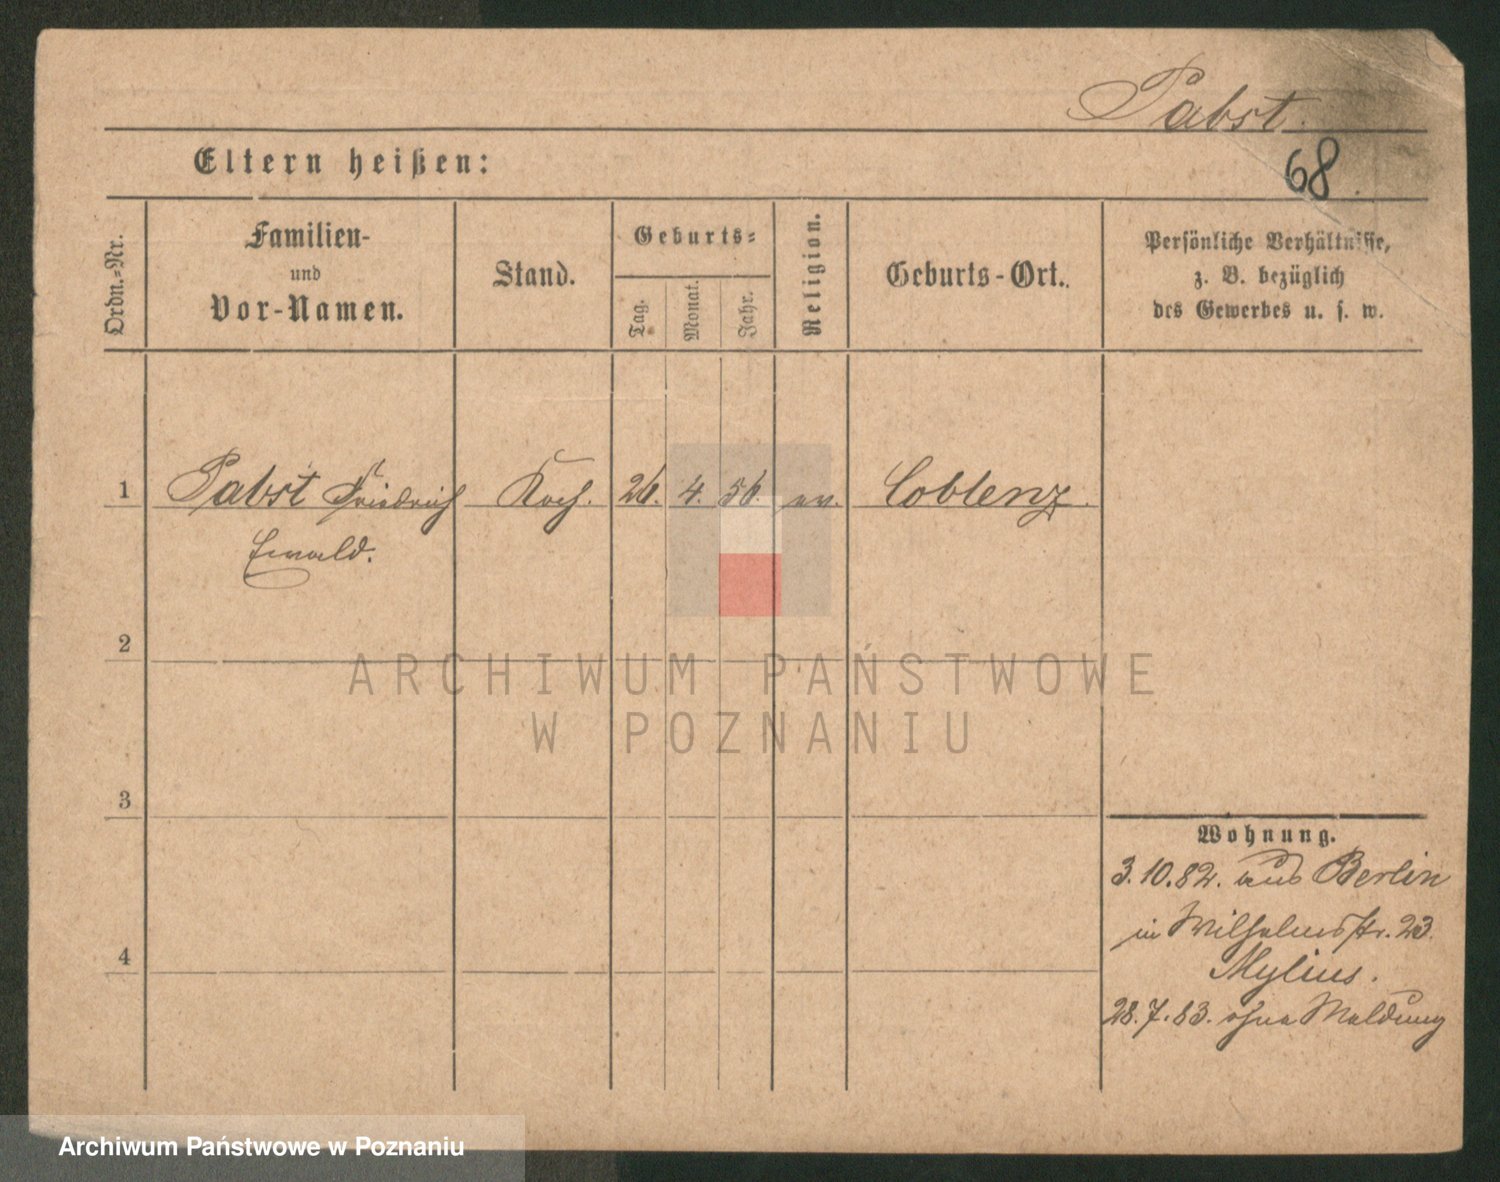 Pabst.
68.
Eltern heißen:
Ordn.-Nr.
Familien-
und
Vor-Namen.
Stand.
Geburts-
Tag.
Monat.
Jahr.
Religion.
Geburts-Ort.
Persönliche Verhältnisse,
z. B. bezüglich
des Gewerbes u. s. w.
1 Pabst Friedrich Koch. 26. 4. 56. ev. Coblenz.
Ewald.
2
ARCHIWUM PAŃSTWOWE
W POZNANIU
3
Wohnung.
3.10.82. aus Berlin
in Wilhelmsstr. 23.
4
Mylius.
28.7.83. ohne Meldung
Archiwum Państwowe w Poznaniu